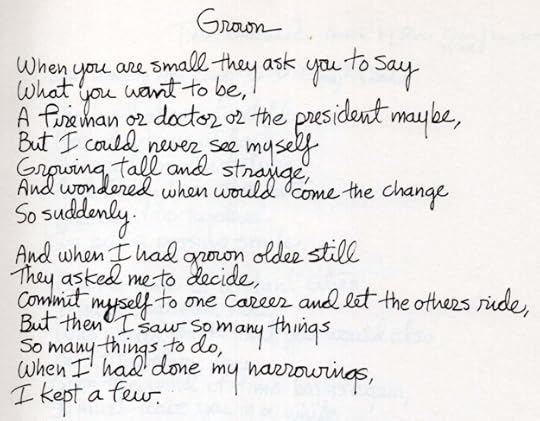 Grown
When you are small they ask you to say
What you want to be,
A fireman or doctor or the president maybe,
But I could never see myself
Growing tall and strange,
And wondered when would come the change
So suddenly.
And when I had grown older still
They asked me to decide,
Commit myself to one career and let the others ride,
But then I saw so many things
So many things to do,
When I had done my narrowings,
I kept a few.